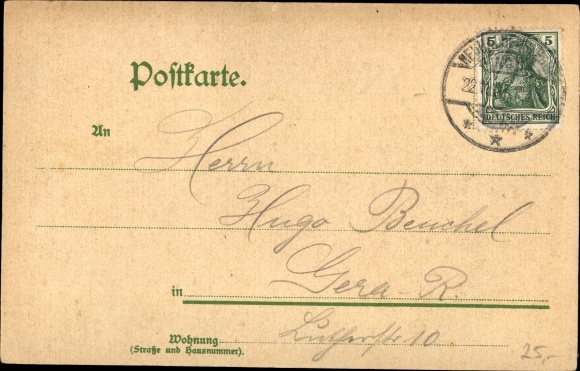 Postkarte.
5 5
22.
DEUTSCHES REICH
An Herrn
Hugo Beuchel
in Gera-R.
Wohnung Lutherstr 10
(Straße und Hausnummer).
25,-